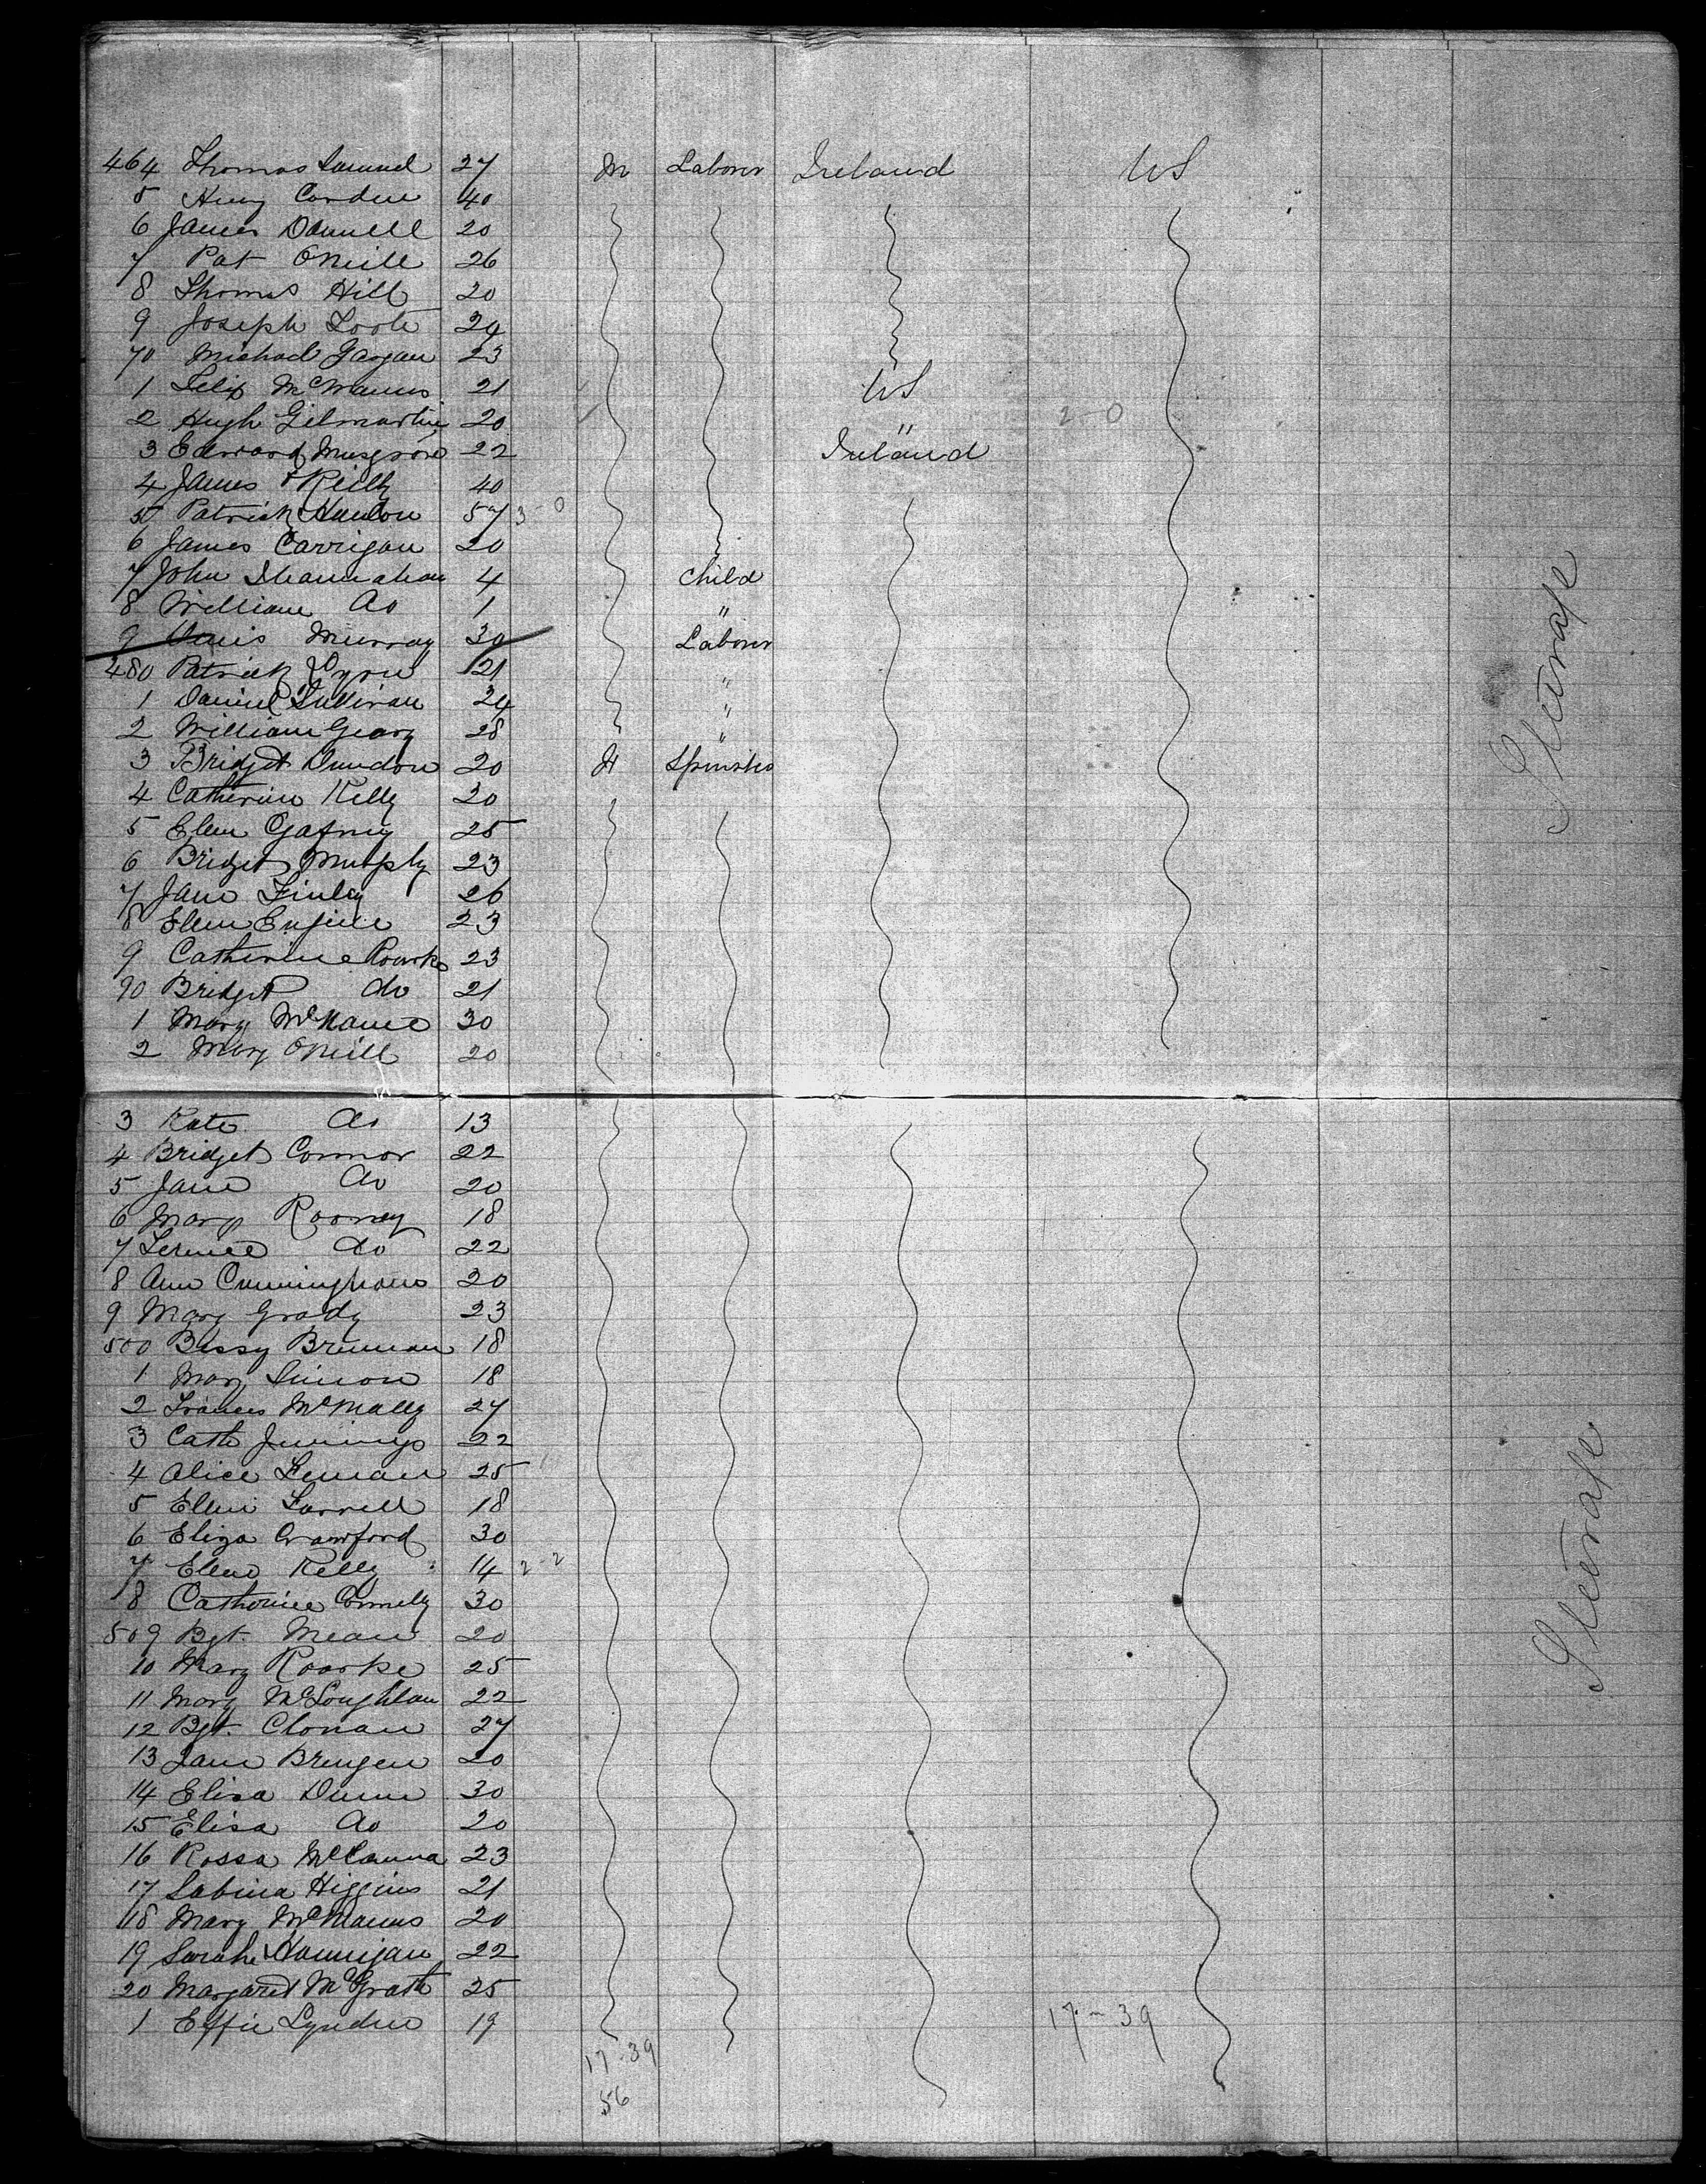 464 Thomas Samuel 27 M Laborer Ireland US
5 Henry Corden 40
6 James Dannell 20
7 Pat ONeill 26
8 Thomas Hill 20
9 Joseph Toole 24
70 Michael Gargan 23
1 Felix McManus 21 US
2 Hugh Gilmartin 20 " 2 0
3 Edward Musgrove 22 Ireland
4 James Reilly 40
5 Patrick Hanlon 57 3 0
6 James Carrigan 20
7 John Shannahan 4 Child
8 William do 1 "
9 Murray 30 Laborer
480 Patrick Byrne 21 "
1 Daniel Sullivan 24 "
2 William Geary 28 "
3 Bridget Dundon 20 F Spinster
4 Catherine Kelly 30
5 Ellen Gafney 25
6 Bridget Murphy 23
7 Jane Finley 26
8 Ellen 23
9 Catherine Rourke 23
90 Bridget do 21
1 Mary 30
2 Mary ONeill 20
3 Kate do 13
4 Bridget Connor 22
5 Jane do 20
6 Mary Rooney 18
7 do 22
8 Ann Cunningham 20
9 Mary Grady 23
500 Bessy Brennan 18
1 Mary 18
2 Frances McNally 27
3 Cath Jennings 22
4 Alice 25
5 Ellen Farrell 18
6 Eliza Crawford 30
7 Ellen Kelly 14 2-2
8 Catherine Connelly 30
509 Bgt. Mean 20
10 Mary Roarke 25
11 Mary McLoughlan 22
12 Bgt. Clonan 27
13 Jane 20
14 Elisa Dunn 30
15 Elisa do 20
16 Rossa McCanna 23
17 Sabina Higgins 21
18 Mary McManus 20
19 Sarah Hannigan 22
20 Margaret McGrath 25
1 Effie 19 17-39
17-39
56
Steerage
Steerage